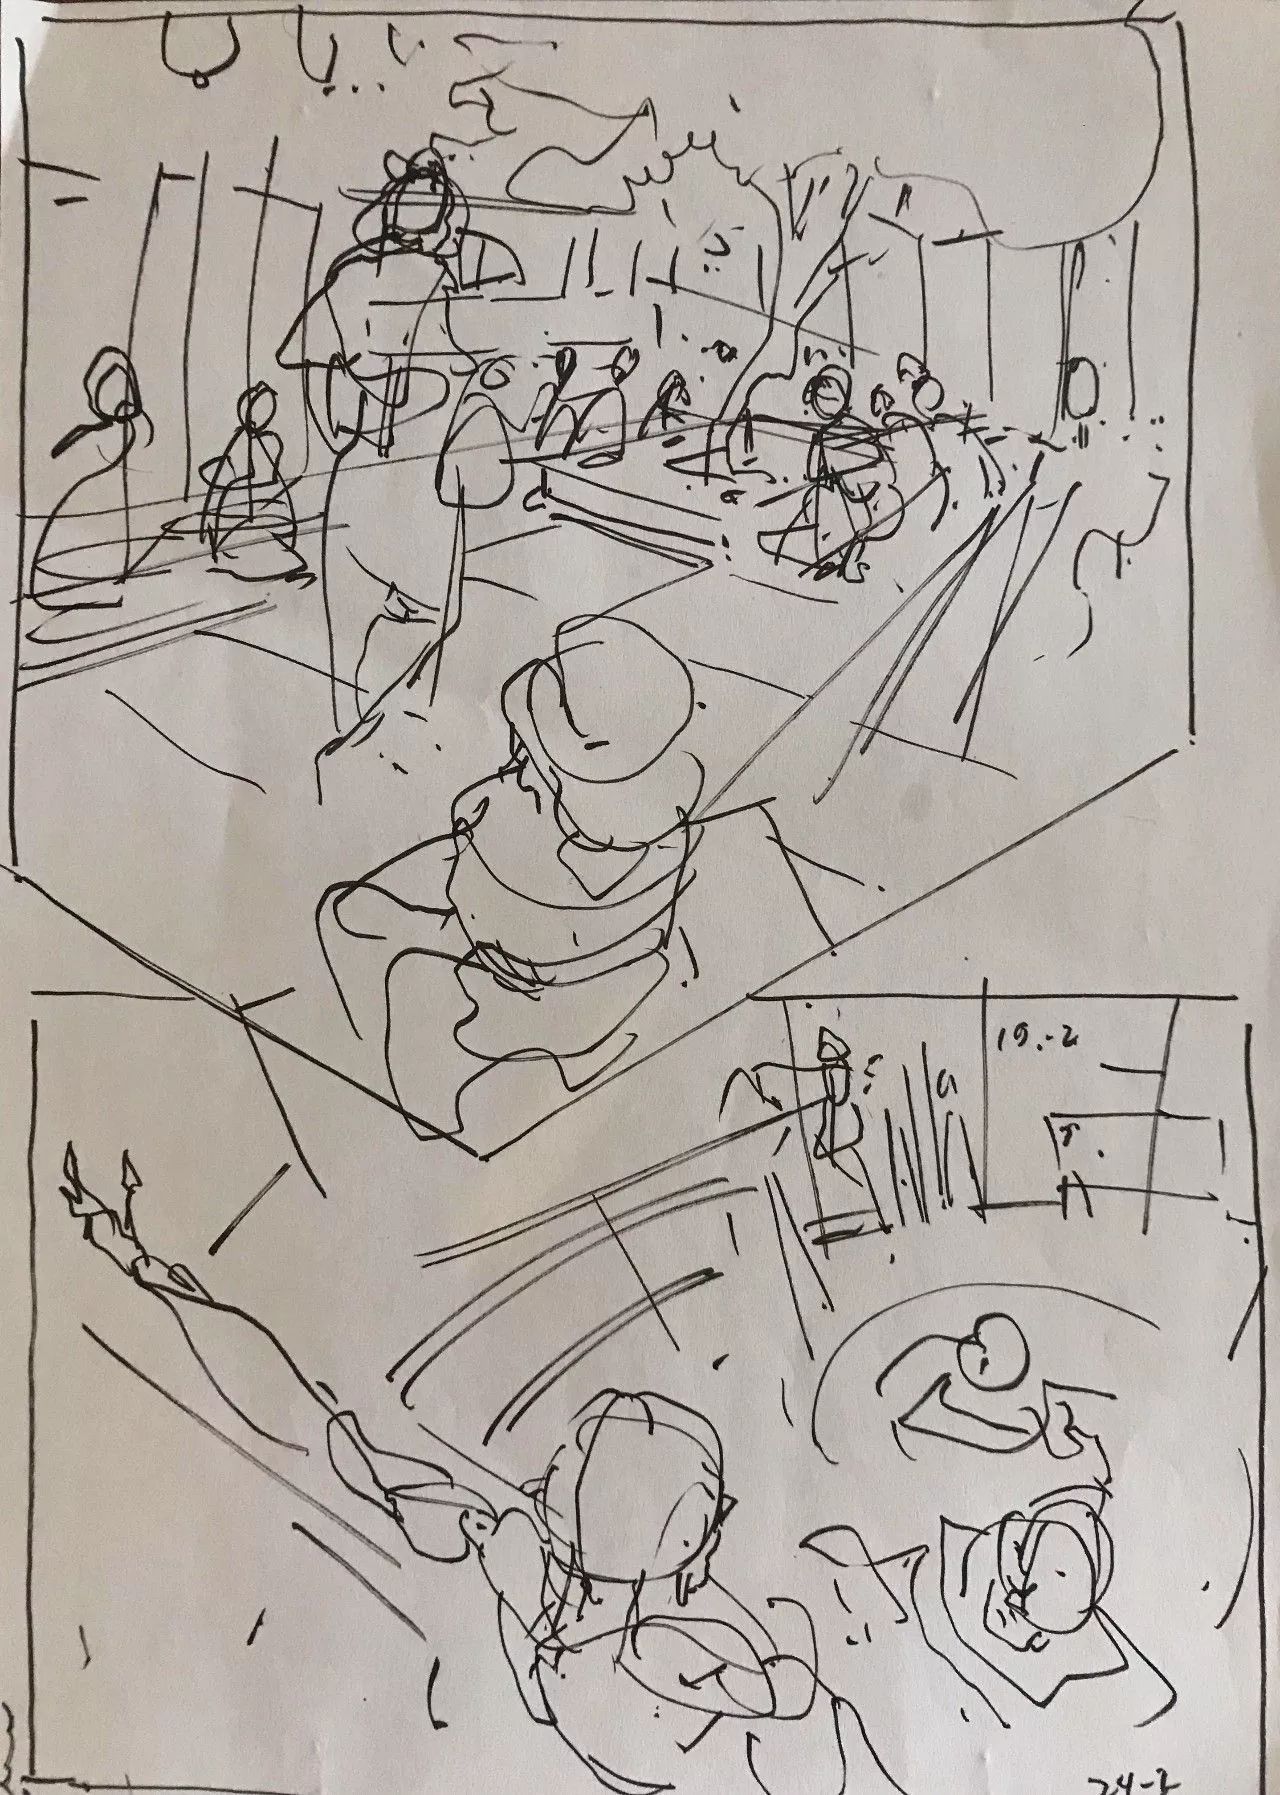 19.-2
24-2